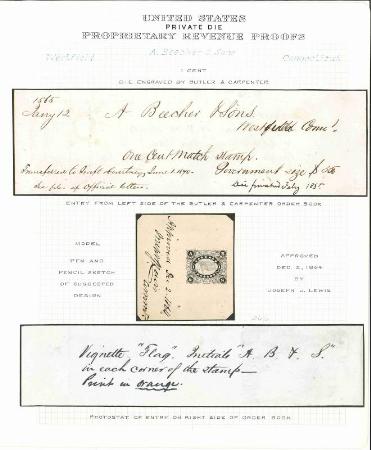 UNITED STATES
PRIVATE DIE
PROPRIETARY REVENUE PROOFS
Westfield A. Beecher & Sons Connecticut
1 CENT
DIE ENGRAVED BY BUTLER & CARPENTER
1865
Jany 12 A Beecher & Sons.
Westfield Conn!.
One Cent Match Stamp.
Government size $
Die finished Feby 1865
the file of Official letters.
ENTRY FROM LEFT SIDE OF THE BUTLER & CARPENTER ORDER BOOK
MODEL
PEN AND
PENCIL SKETCH
OF SUGGESTED
DESIGN
Approved Dec 2. 1864
Joseph J Lewis
APPROVED
DEC. 2, 1864
BY
JOSEPH J. LEWIS
Vignette "Flag". Initials "A. B. & S."
in each corner of the stamp—
Print in orange.
PHOTOSTAT OF ENTRY ON RIGHT SIDE OF ORDER BOOK